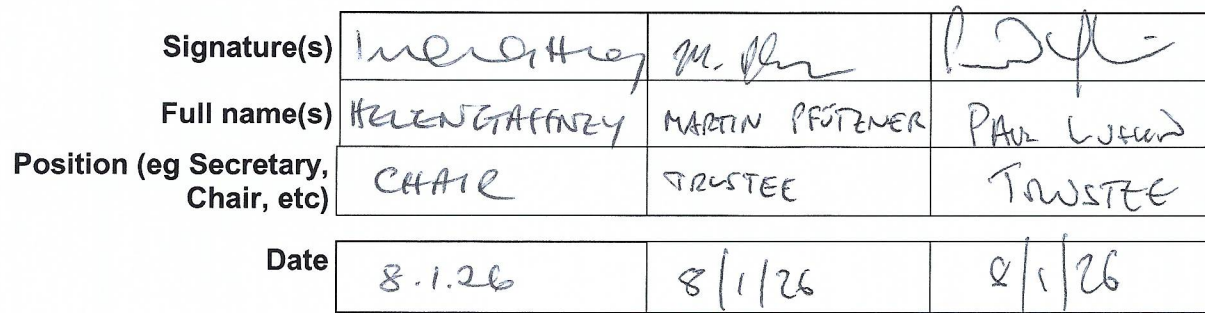 Signature(s)
Full name(s) HELEN GAFFNEY MARTIN PFÜTZNER PAUL
Position (eg Secretary, Chair, etc) CHAIR TRUSTEE TRUSTEE
Date 8.1.26 8/1/26 8/1/26